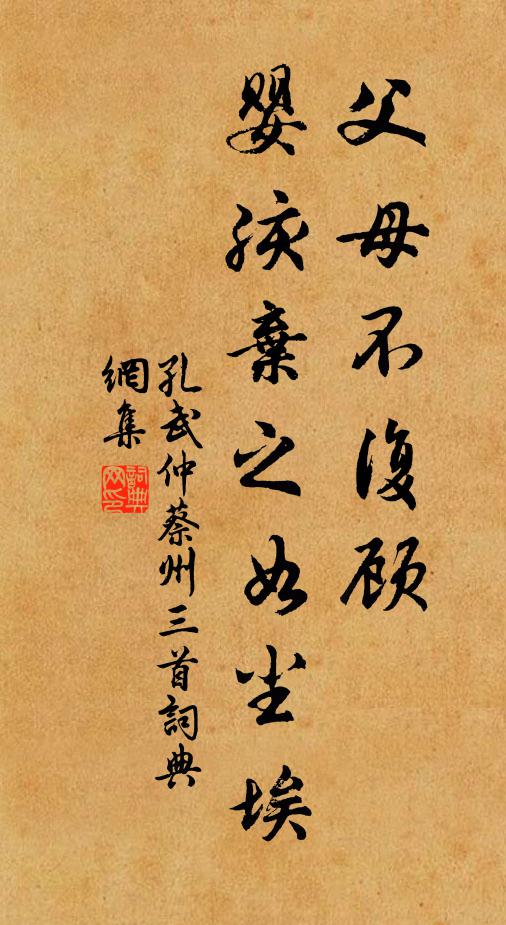 父母不復顾
嬰孩棄之如尘埃
孔武仲蔡州三首詞典
網集
詞典
网印